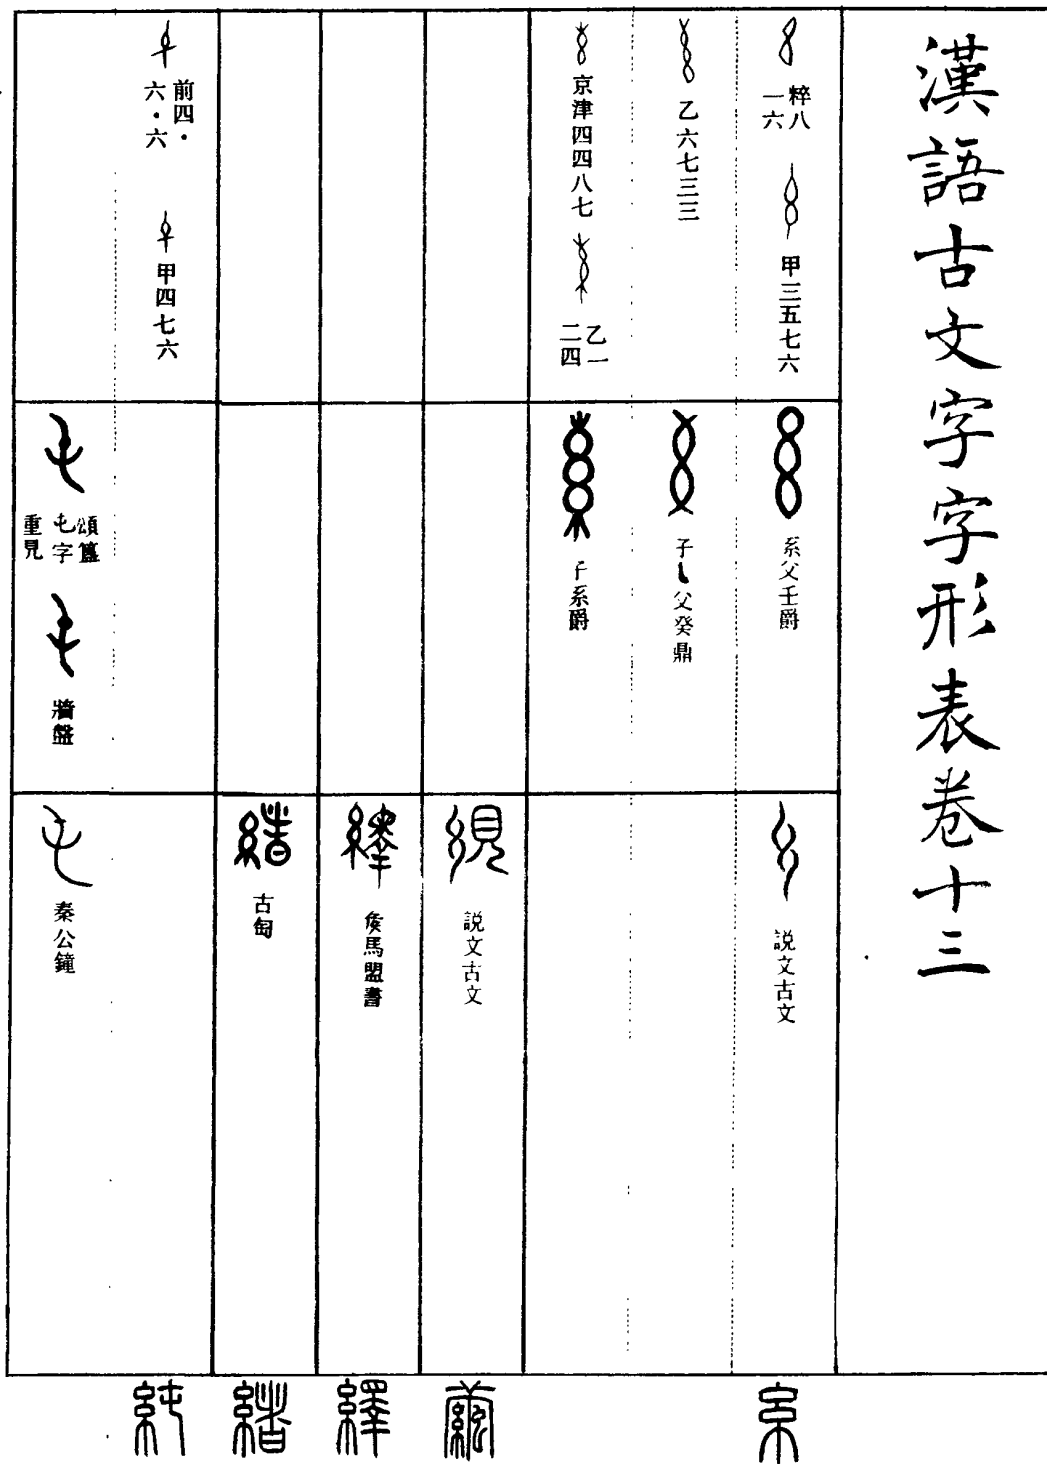 漢語古文字字形表卷十三
粹八
一六
甲三五七六
乙六七三三
京津四四八七
乙一
二四
前四·
六·六
甲四七六
糸父壬爵
父癸鼎
子糸爵
頌簋
屯字
重見
牆盤
説文古文
説文古文
侯馬盟書
古匋
秦公鐘
糸
繭
繹
緒
純